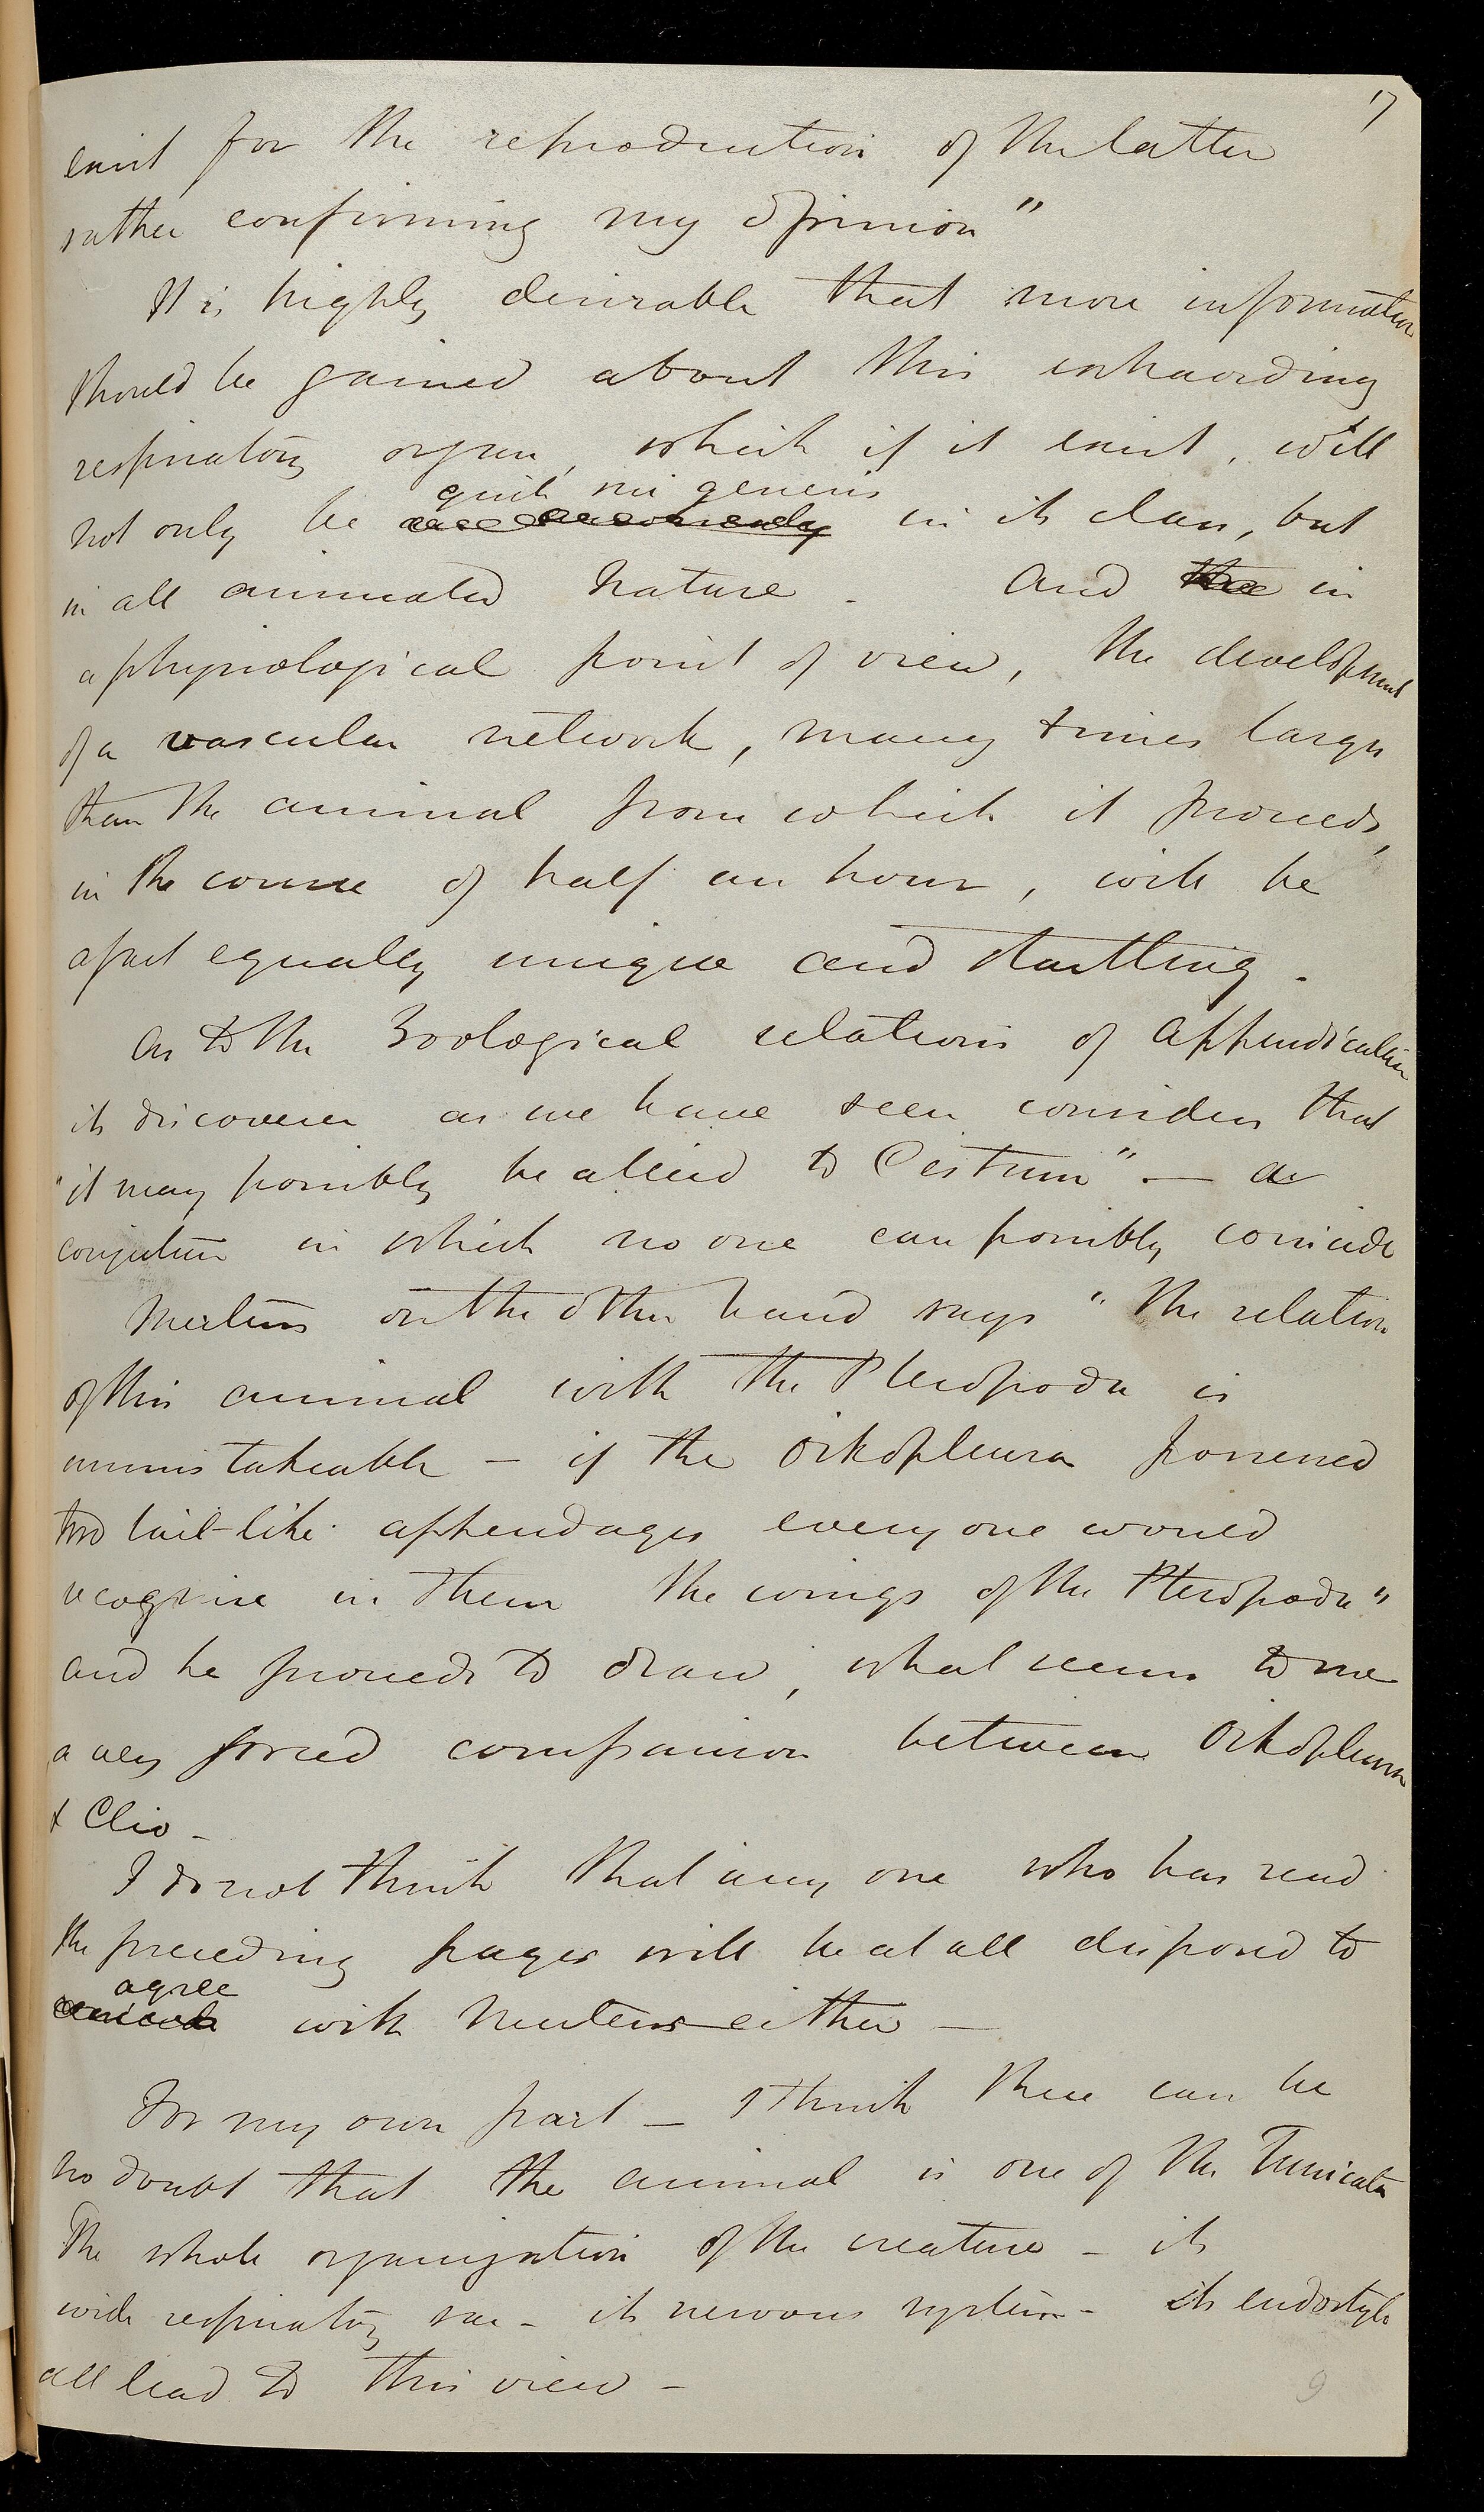 17
exist for the reproduction of the latter
rather confirming my opinion"
It is highly desirable that more information
should be gained about this extraordinary
respiratory organ, which if it exist, will
quite sui generis
not only be in its class, but
in all animated Nature - And the in
a physiological point of view, the development
of a vascular network, many times larger
than the animal from which it proceeds,
in the course of half an hour, will be
a fact equally unique and startling.
As to the Zoological relations of Appendicularia
its discoverer as we have seen considers that
"it may possibly be allied to Cestum" - a
conjecture in which no one can possibly coincide
Mertens on the other hand says "the relation
of this animal with the Pteropoda is
unmistakeable - if the Oikopleura possessed
two tail-like appendages everyone would
recognise in them the wings of the Pteropoda"
and he proceeds to draw, what seems to me
a very forced comparison between Oikopleura
& Clio -
I do not think that any one who has read
the preceding pages will be at all disposed to
agree
coincide with Mertens either -
For my own part - I think there can be
no doubt that the animal is one of the Tunicata
The whole organization of the creature - its
wide respiratory sac - its nervous system - its endostyle
all lead to this view -
9